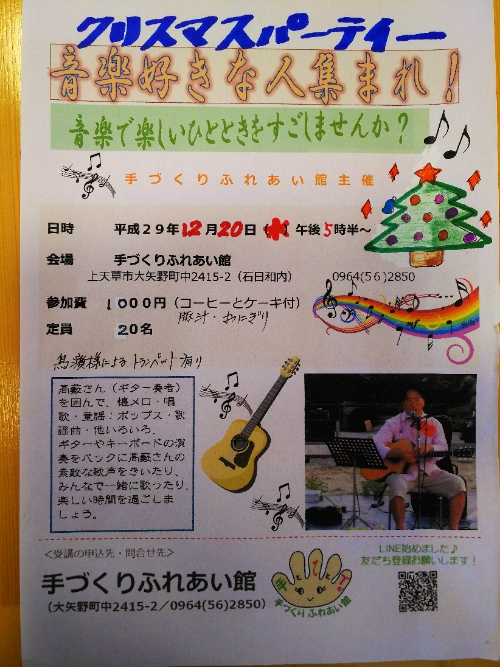 クリスマスパーティー
音楽好きな人集まれ!
音楽で楽しいひとときをすごしませんか?
手づくりふれあい館主催
日時 平成29年12月20日(水)午後5時半~
会場 手づくりふれあい館
上天草市大矢野町中2415-2(石日和内) 0964(56)2850
参加費 1000円(コーヒーとケーキ付)
豚汁・おにぎり
定員 20名
によるトランペット有り
高藪さん(ギター奏者)
を囲んで、懐メロ・唱
歌・童謡・ポップス・歌
謡曲・他いろいろ、
ギターやキーボードの演
奏をバックに高藪さんの
素敵な歌声をきいたり、
みんなで一緒に歌ったり、
楽しい時間を過ごしま
しょう。
<受講の申込先・問合せ先>
手づくりふれあい館
(大矢野町中2415-2/0964(56)2850)
手づくりふれあい館
LINE始めました♪
友だち登録お願いします!